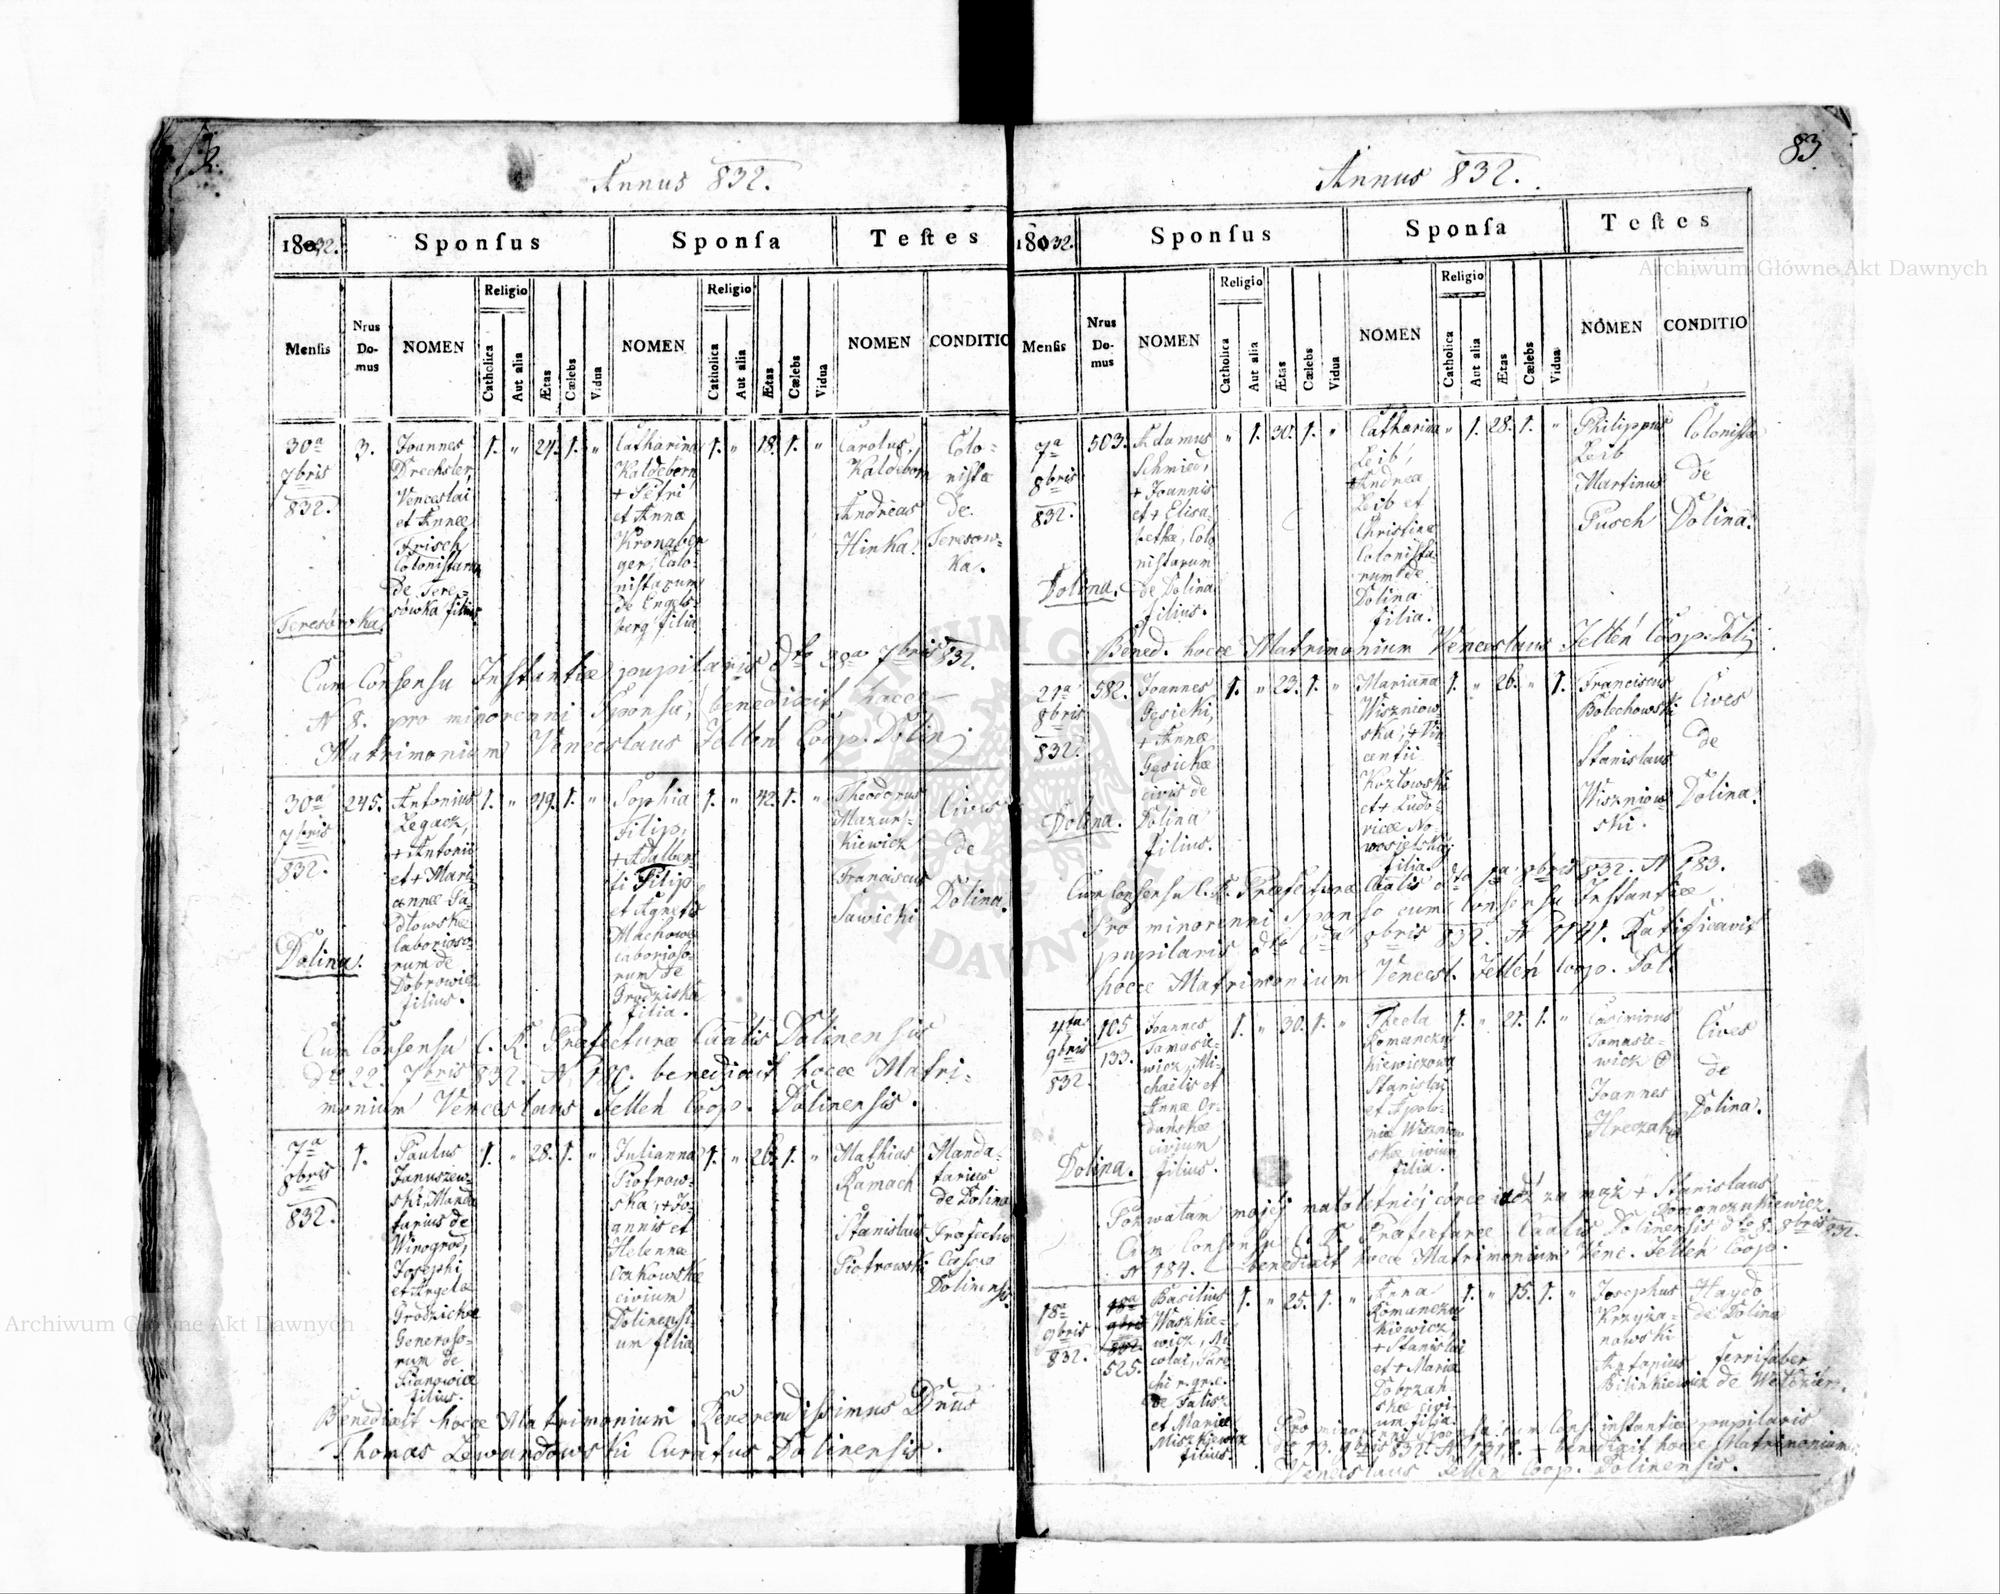 Annus 832.
1832.
Sponſus
Sponſa
Teſtes
Menſis
Nrus Do-mus
NOMEN
Religio
Catholica
Aut alia
Ætas
Cælebs
Vidua
NOMEN
Religio
Catholica
Aut alia
Ætas
Cælebs
Vidua
NOMEN
CONDITIO
30a
7bris
832.
Teresówka
3.
Joannes
Drechsler,
Venceslai
et Annæ
Frisch
Colonistarum
de Tere-
sówka filius
1. " 24. 1. "
Catharina
Kaldeborn
+ Petri
et Anna
Kronaber
ger, Colo-
nistarum
de Engels-
berg filia
1. " 18. 1. "
Carolus
Kaldeborn
Andreas
Hinka.
Colo-
nistæ
de
Teresow-
ka.
Cum Consensu Instantiæ pupilaris dto 28a 7bris 832.
N 8. pro minorenni Sponsa, benedixit hocce
Matrimonium Venceslaus Jellen Coop. Dolin
30a
7bris
832.
Dolina.
245.
Antonius
Legacz,
+ Antonii
et + Mari
annæ Sa-
dłowskæ
laborioso
rum de
Dobrowice
filius.
1. " 49. 1. "
Sophia
Filip,
+ Adalber
ti Filip
et Agnetis
Machowe
laborioso-
rum de
Grodziska
filia.
1. " 42. 1. "
Theodorus
Mazur-
Kiewicz
Franciscus
Sawicki
Cives
de
Dolina.
Cum Consensu C. R. Præfecturæ Caalis Dolinensis
dto 22. 7bris 832. N 180. benedixit hocce Matri-
monium Venceslaus Jellen Coop. Dolinensis.
7a
8bris
832.
1.
Paulus
Januszew-
ski, Manda
tarius de
Winogrod,
Josephi
et Angela
Grodzickæ
Generoso-
rum de
filius.
1. " 28. 1. "
Julianna
Piotrow-
ska, + Jo-
annis et
Helennæ
civium
Dolinensi
um filia
1. " 26. 1. "
Mathias
Ramach
Stanislaus
Piotrowski
Manda-
tarius
de Dolina
Præfectus
Cassæ
Dolinensis.
Benedixit hocce Matrimonium Reverendissimus Dnus
Thomas Lewandowski Curatus Dolinensis.
83
Annus 832.
1832.
Sponſus
Sponſa
Teſtes
Menſis
Nrus Do-mus
NOMEN
Religio
Catholica
Aut alia
Ætas
Cælebs
Vidua
NOMEN
Religio
Catholica
Aut alia
Ætas
Cælebs
Vidua
NOMEN
CONDITIO
7a
8bris
832.
Dolina.
503.
Adamus
Schmied,
+ Joannis
et + Elisa
bethæ, Colo
nistarum
de Dolina
filius.
" 1. 30. 1. "
Catharina
Leib,
+ Andrea
Leib et
Christina
Colonista-
rum de
Dolina
filia.
" 1. 28. 1. "
Philippus
Leib
Martinus
Pusch
Colonistæ
de
Dolina.
Bened. hocce Matrimonium Venceslaus Jellen Coop. Dolin
21a
8bris
832.
Dolina.
582.
Joannes
Gęsicki,
+ Annæ
Gęsickæ
civis de
Dolina
filius.
1. " 23. 1. "
Marianna
Wiszniow-
ska, + Vin
centii
Kozłowski
et + Ludo-
vicæ No-
wosielska
filia.
1. " 26. " 1.
Franciscus
Bolechowski
Stanislaus
Wiszniow-
ski.
Cives
de
Dolina.
Cum Consensu C. R. Præfecturæ Caalis dto 1a 8bris 832. N 183.
Pro minorenni Sponso cum Consensu Instantiæ
pupilaris dto 8bris 832. N 1141. Ratificavit
hocce Matrimonium Vencesl. Jellen Coop. Dol.
4ta
9bris
832.
Dolina.
105.
133.
Joannes
Tomasie-
wicz, Mi-
chaelis et
Annæ Or-
danskæ
civium
filius.
1. " 30. 1. "
Thecla
Romanczu
kiewiczowa
Stanislai
et Apolo-
niæ Wiszniow
skæ civium
filia.
1. " 21. 1. "
Casimirus
Tomasie-
wicz
Joannes
Cives
de
Dolina.
Pozwalam mojéj małoletniéj córce iść za mąż + Stanislaus
Romanczukiewicz.
Cum Consensu C. R. Præfecturæ Caalis Dolinensis dto 8. 8bris 832.
N 184. benedixit hocce Matrimonium Venc. Jellen Coop.
18a
9bris
832.
525.
Basilius
Waszkie-
wicz, Ni
colai
r. gr. c.
et Mariæ
Miszkiewicz
filius
1. " 25. 1. "
Anna
Rimanczu
kiewicz,
+ Stanislai
et + Maria
Dobrzań
skæ civi-
um filia.
1. " 15. 1. "
Josephus
Krzyża-
nowski
Antonius
Bilinkiewicz
Haydo
de Dolina
Ferrifaber
de
Pro minorenni Sponsa cum Cons. instantiæ pupilaris
dto 13. 9bris 832. N 1318. benedixit hocce Matrimonium
Venceslaus Jellen Coop. Dolinensis.
Archiwum Główne Akt Dawnych
Archiwum Główne Akt Dawnych